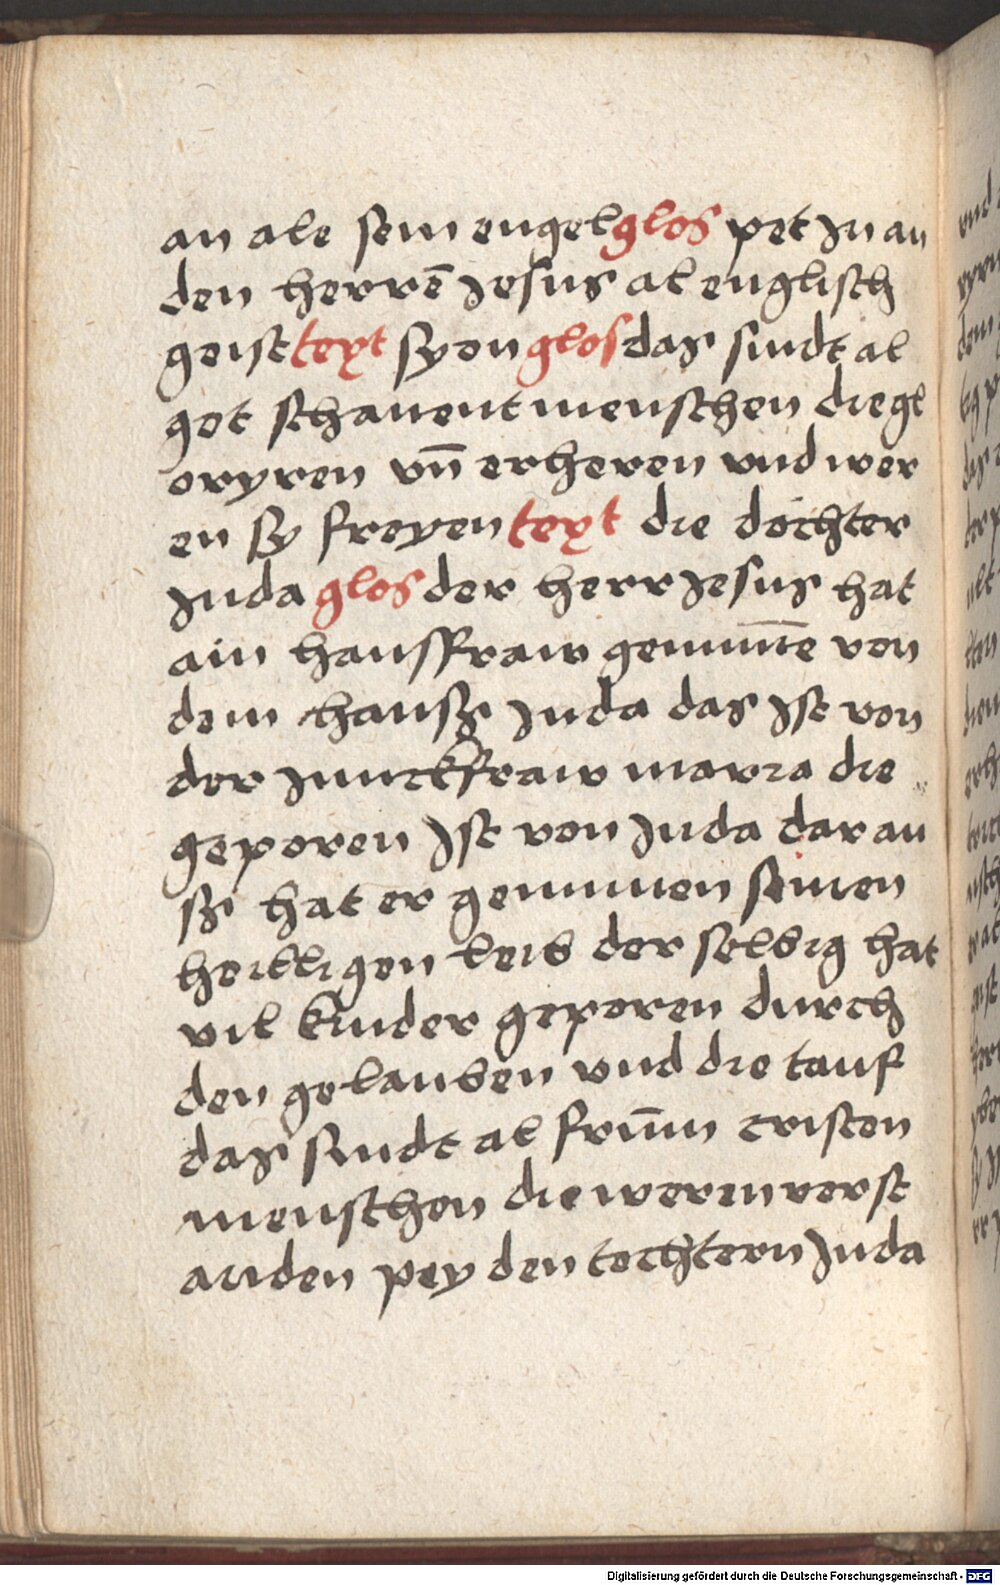 an ale sein engel glos pet In an
den herrē Iesus al englisch
geist text syon glos das sindt al
got schauent menschen die gl
oryren vn̄ erheren vnd wer
en sy freyen text die dochter
Juda glos der herr Iesus hat
ain hausfraw genum̄e von
dem hauß Juda das Ist von
der Junckfraw maria die
geporen Ist von Juda darau
ß hat er genummen seinen
heilligen leib der selbig hat
vil kinder geporen durch
den gelauben vnd die tauf
das sindt al frūm cristen
menschen die weren verst
anden pey den tochtern Juda
Digitalisierung gefördert durch die Deutsche Forschungsgemeinschaft - DFG